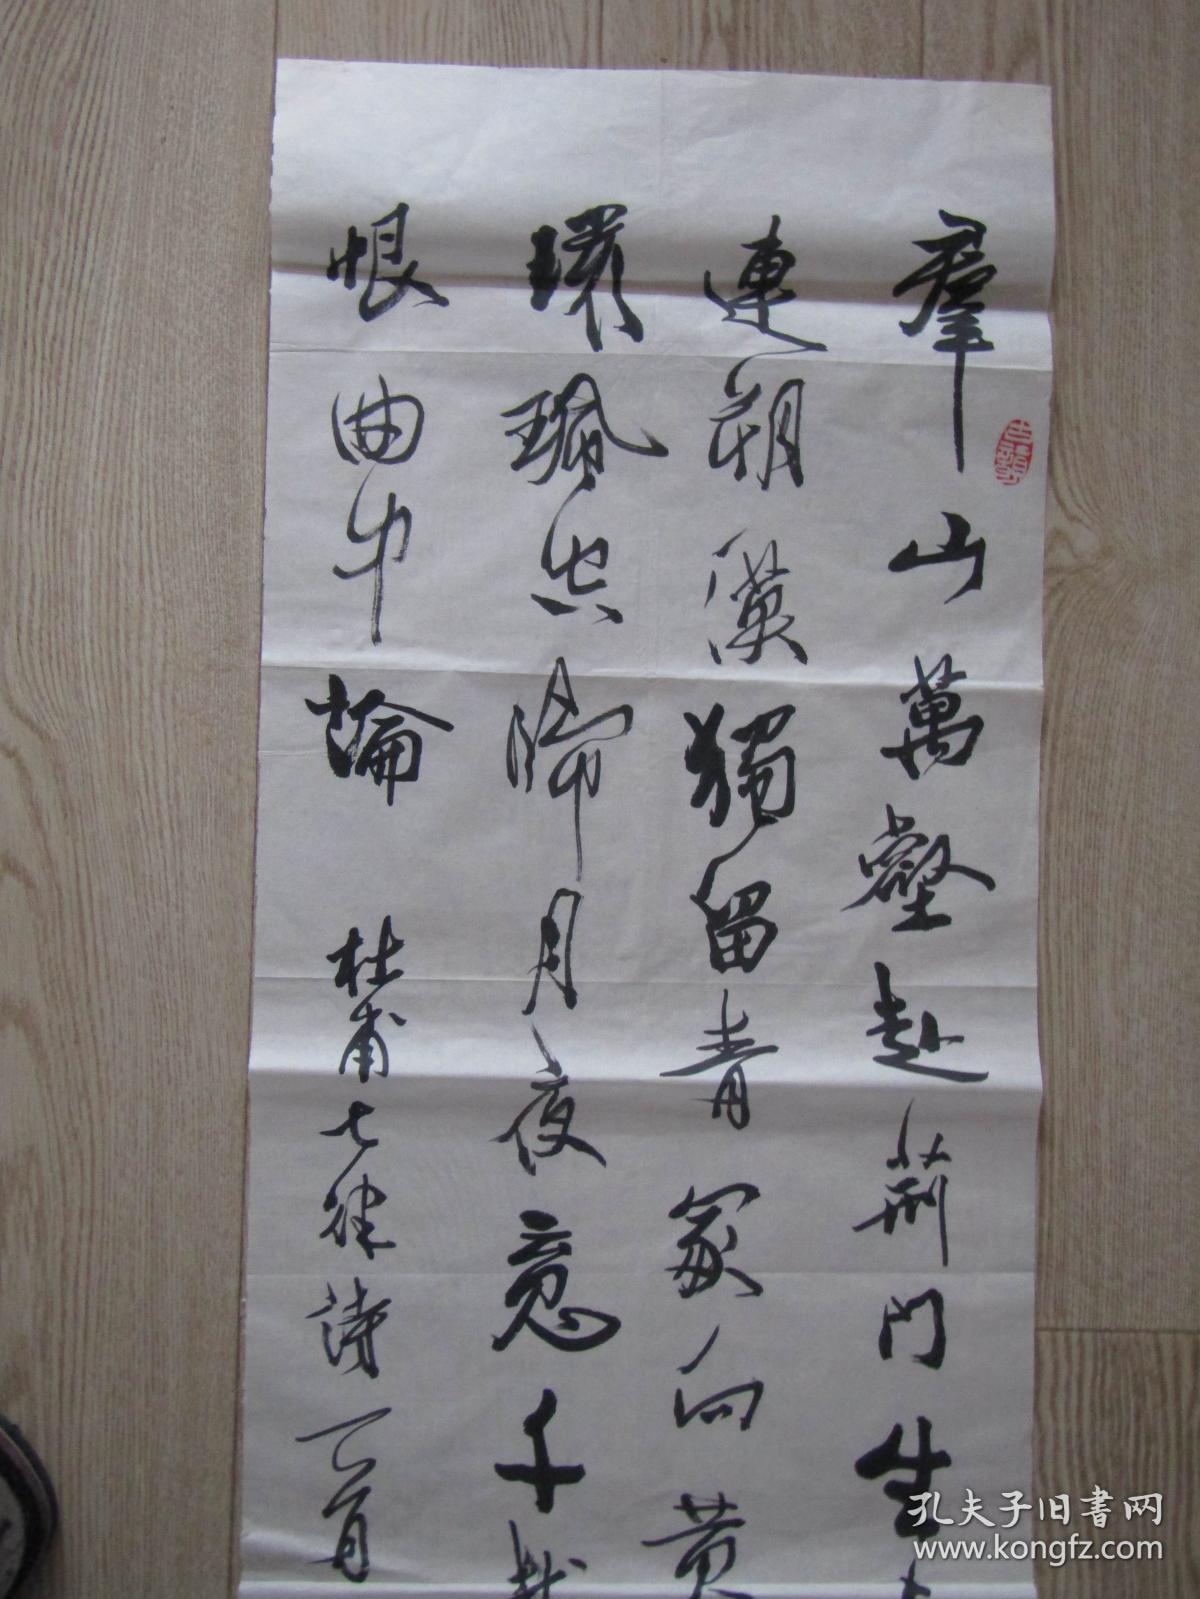 羣山萬壑赴荊門生
連朔漠獨留青冢向黄
環珮空歸月夜魂千載
恨曲中論 杜甫七律詩一首
孔夫子旧書网
www.kongfz.com